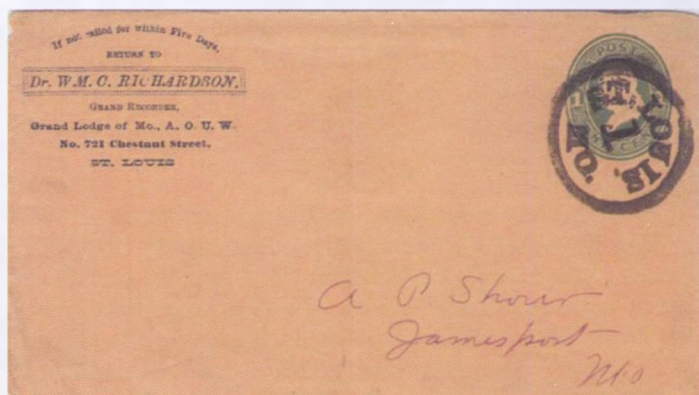 If not called for within Five Days,
RETURN TO
Dr. W.M.C. RICHARDSON,
GRAND RECORDER,
Grand Lodge of Mo., A. O. U. W.
No. 721 Chestnut Street,
ST. LOUIS
U.S. POSTAGE
ST. LOUIS, MO.
A P Shour
Jamesport
Mo